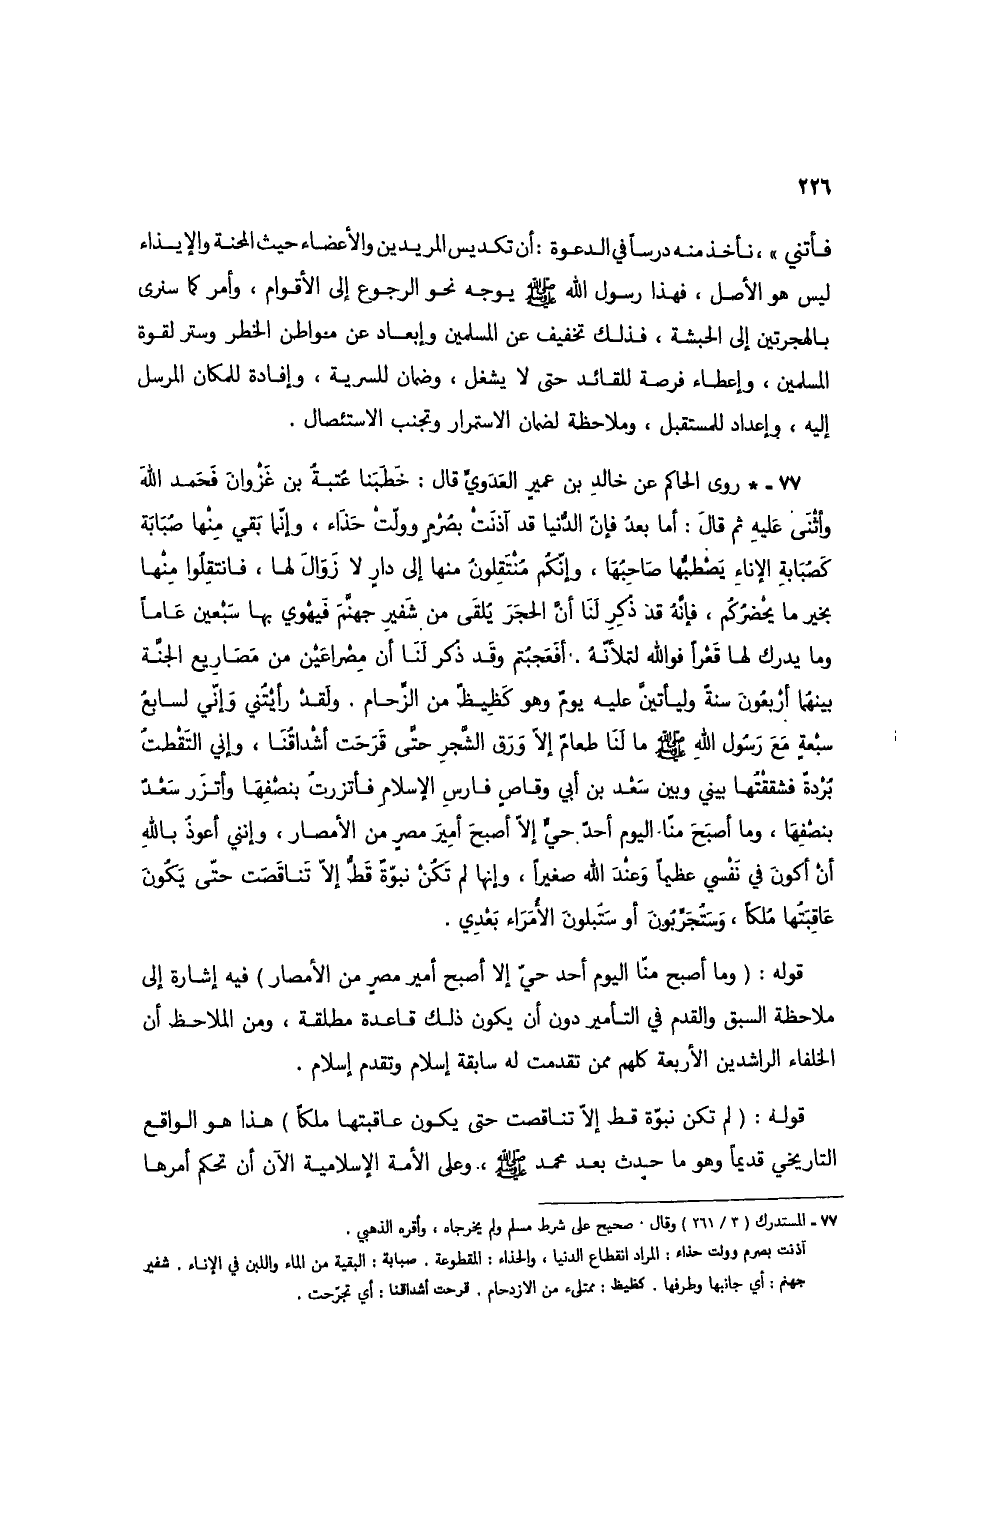 ٢٢٦
فـأتني » ، نـأخـذ منـه درسـاً في الـدعـوة : أن تكـديس المريـدين والأعضـاء حيث المحنـة والإيـذاء
ليس هو الأصـل ، فهـذا رسـول الله ﷺ يـوجـه نحـو الرجـوع إلى الأقـوام ، وأمر كما سنرى
بـالهجرتين إلى الحبشـة ، فـذلـك تخفيف عن المسلمين وإبعـاد عن مـواطن الخطر وستر لقـوة
المسلمين ، وإعطـاء فرصـة للقـائـد حتى لا يشغل ، وضمان للسرية ، وإفادة للمكان المرسل
إليه ، وإعداد للمستقبل ، وملاحظة لضمان الاستمرار وتجنب الاستئصال .
٧٧ ـ * روى الحاكم عن خالدِ بن عميرٍ العَدَويِّ قال : خَطَبَنا عُتبـةُ بن غَزْوانَ فَحَمد اللهَ
وأثْنَى عَليهِ ثم قالَ : أما بعدُ فإنّ الدُّنيا قد آذنَتْ بصُرْمٍ وولّتْ حَذَاء ، وإنّما بَقي مِنْها صُبَابَة
كَصُبَابةِ الإناءِ يَصْطبُّها صَاحِبُهَا ، وإنّكُم مُنْتَقِلونَ منها إلى دارٍ لا زَوَالَ لهـا ، فـانتقِلُوا مِنْهـا
بخير ما يَحْضرُكُم ، فإنَّهُ قدْ ذُكِرِ لَنَا أنَّ الحجَرَ يُلقَى من شَفيرِ جهنَّمَ فَيهْوي بهـا سَبْعين عَـامـاً
وما يدرك لهـا قَعْراً فوالله لتملأنّـهُ . أفَعَجبْتم وقَـد ذُكر لَنَـا أن مِصْراعَيْن من مَصَـاريع الجنَّـة
بينهُما أرْبعُونَ سنةً وليـأتينَّ عليـه يومٌ وهو كَظِيـظٌ من الزِّحـام . ولَقـدْ رأيْتُني وَإنّي لسابعُ
سبْعةٍ مَعَ رَسُول اللهِ ﷺ ما لَنَا طعامٌ إلاّ وَرَق الشَّجرِ حتَّى قَرَحَت أشْداقُنَـا ، وإني التَقْطتُ
بُرْدةً فشققْتُهـا بيني وبين سَعْـد بن أبي وقـاصٍ فـارسِ الإسلام فـأتزرتُ بنصْفِهَـا وأتـزَر سَعْـدٌ
بنصْفِهَا ، وما أصبَحَ منّا اليوم أحدٌ حيٌّ إلاّ أصبحَ أميرَ مصرٍ من الأمصـار ، وإنني أعوذُ بـاللهِ
أنْ أكونَ في نَفْسي عظيماً وَعنْدَ الله صغيراً ، وإنها لم تَكُنْ نبوّةٌ قَطُّ إلاّ تَنـاقَصَت حتّى يَكُونَ
عَاقِبَتُها مُلكاً ، وَسَتُجَرِّبُونَ أو سَتُبلونَ الأُمَرَاء بَعْدِي .
قوله : ( وما أصبح منّا اليوم أحد حيّ إلا أصبح أمير مصرٍ من الأمصار ) فيه إشـارة إلى
ملاحظة السبق والقدم في التـأمير دون أن يكون ذلـك قـاعـدة مطلقـة ، ومن الملاحـظ أن
الخلفاء الراشدين الأربعة كلهم ممن تقدمت له سابقة إسلام وتقدم إسلام .
قولـه : ( لم تكن نبوّة قـط إلاّ تنـاقصت حتى يكـون عـاقبتهـا ملكاً ) هـذا هـو الـواقـع
التاريخي قديماً وهو ما حـدث بعـد محمـد ﷺ ، وعلى الأمـة الإسلاميـة الآن أن تحكم أمرهـا
٧٧ ـ المستدرك ( ٣ / ٢٦١ ) وقال : صحيح على شرط مسلم ولم يخرجاه ، وأقره الذهبي .
آذنت بصرم وولت حذاء : المراد انقطاع الدنيا ، والحذاء : المقطوعة . صبابة : البقية من الماء واللبن في الإنـاء . شفير
جهنم : أي جانبها وطرفها . كظيظ : ممتلىء من الازدحام . قرحت أشداقنا : أي تجرّحت .